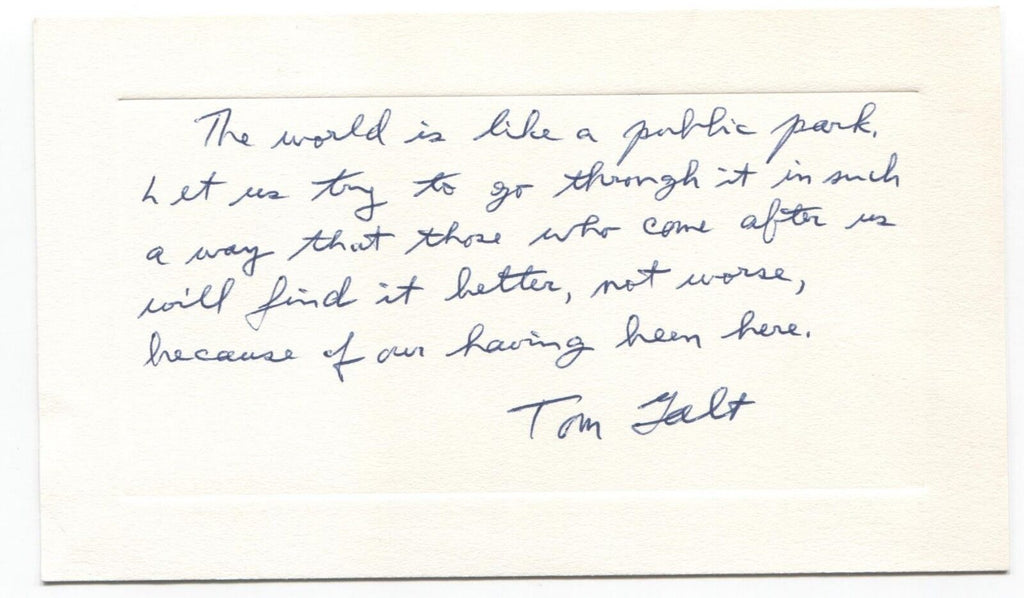 The world is like a public park.
Let us try to go through it in such
a way that those who come after us
will find it better, not worse,
because of our having been here.
Tom Galt